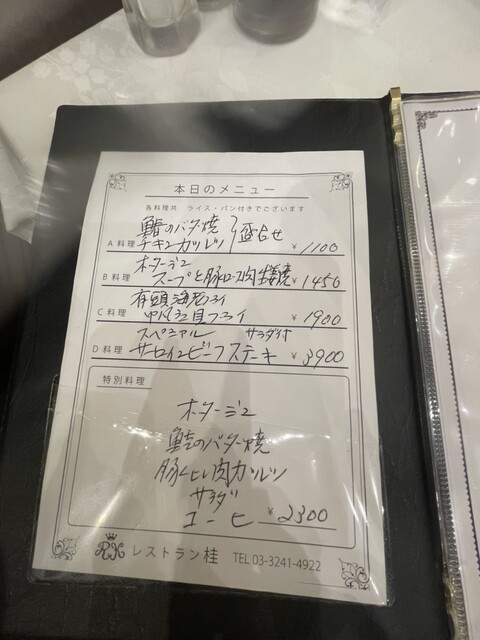 本日のメニュー
各料理共 ライス・パン付きでございます
のバタ焼
A料理 チキンカツレツ 盛合せ ¥1100
ポタージュ
B料理 スープと豚ロース肉生姜焼 ¥1450
有頭海老フライ
C料理 帆立貝フライ ¥1900
スペシャル サラダ付
D料理 サーロインビーフステーキ ¥3900
特別料理
ポタージュ
のバター焼
豚ヒレ肉カツレツ
サラダ
コーヒー ¥2300
RK レストラン桂 TEL 03-3241-4922